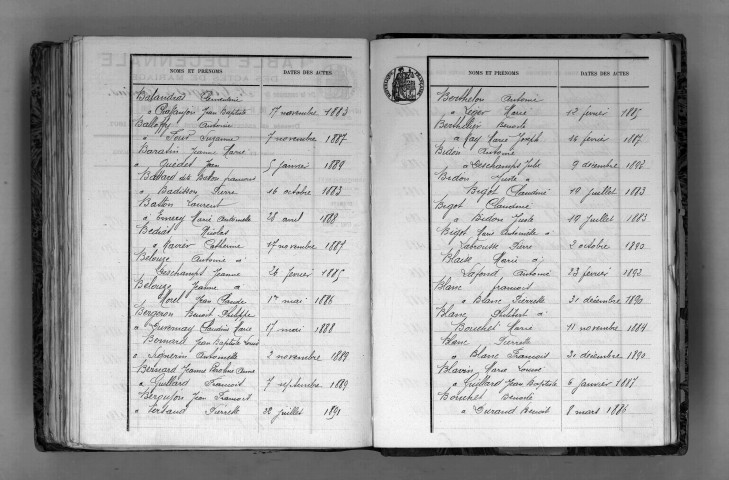 NOMS ET PRÉNOMS DATES DES ACTES
Balandras Clémentine
à Chapuyon Jean Baptiste 17 novembre 1883
Balloffy Antoine
à Four Suzanne 7 novembre 1887
Baratin Jeanne Marie
à Quédet Jean 5 janvier 1889
Battard dit Balon François
à Badisson Pierre 16 octobre 1883
Batton Laurent
à Emery Marie Antoinette 28 avril 1888
Bediat Nicolas
à Xavier Catherine 17 novembre 1887
Belouze Antoine à
Deschamps Jeanne 26 février 1885
Belouze Jeanne à
Morel Jean Claude 1er mai 1886
Bergeron Benoit Philippe
à Duvernay Claudine Marie 17 mai 1888
Bernard Jean Baptiste Louis
à Antoinette 2 novembre 1889
Bernard Jeanne Pauline Anne
à Guillard François 7 septembre 1889
Bergujon Jean François
à Tersaud Pierrette 22 juillet 1891
NOMS ET PRÉNOMS DATES DES ACTES
Berthelon Antoine
à Léger Marie 12 février 1885
Berthelier Benoite
à May Marie Joseph 16 février 1887
Bidon Antoine
à Deschamps Julie 9 décembre 1892
Bidon Juste à
Bigot Claudine 10 juillet 1883
Bigot Claudine
à Bidon Juste 10 juillet 1883
Bigot Marie Antoinette à
Labrousse Pierre 2 octobre 1890
Blaise Marie à
Lafond Antoine 23 février 1892
Blanc François
à Blanc Pierrette 31 décembre 1890
Blanc Philibert à
Bouchet Marie 11 novembre 1884
Blanc Pierrette
à Blanc François 31 décembre 1890
Blavin Marie Louise
à Guillard Jean Baptiste 6 janvier 1887
Bouchet Benoite
à Durand Benoit 8 mars 1886